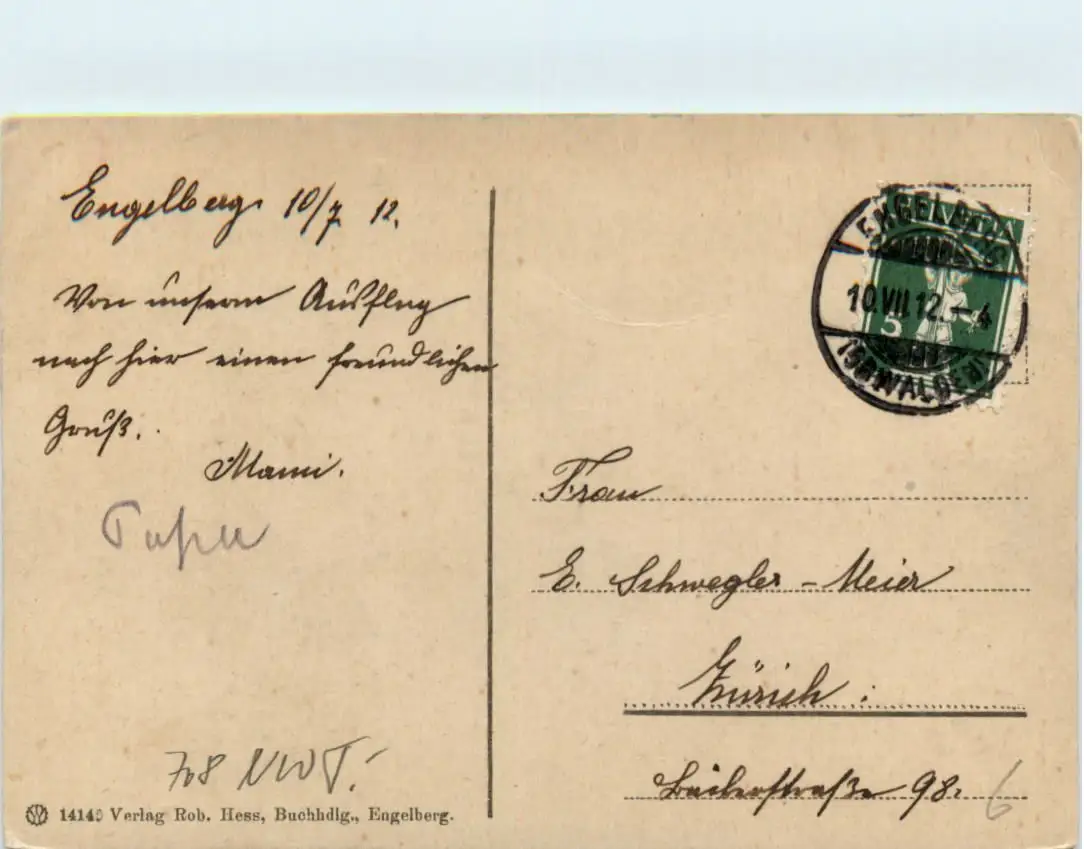 Engelberg 10/7 12.
Von unserm Ausflug
nach hier einen freundlichen
Gruß.
Mami.
Papa
708 NWT.-
1414 Verlag Rob. Hess, Buchhdlg., Engelberg.
HELVETIA
5
ENGELBERG
10.VII.12.-4
(OBWALDEN)
Frau
E. Schwegler-Meier
Zürich:
98.
6